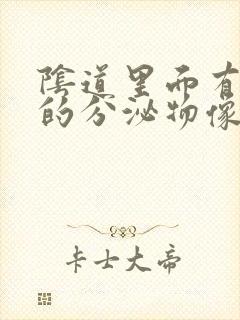 陰道里面有
的分泌物像
卡士大帝